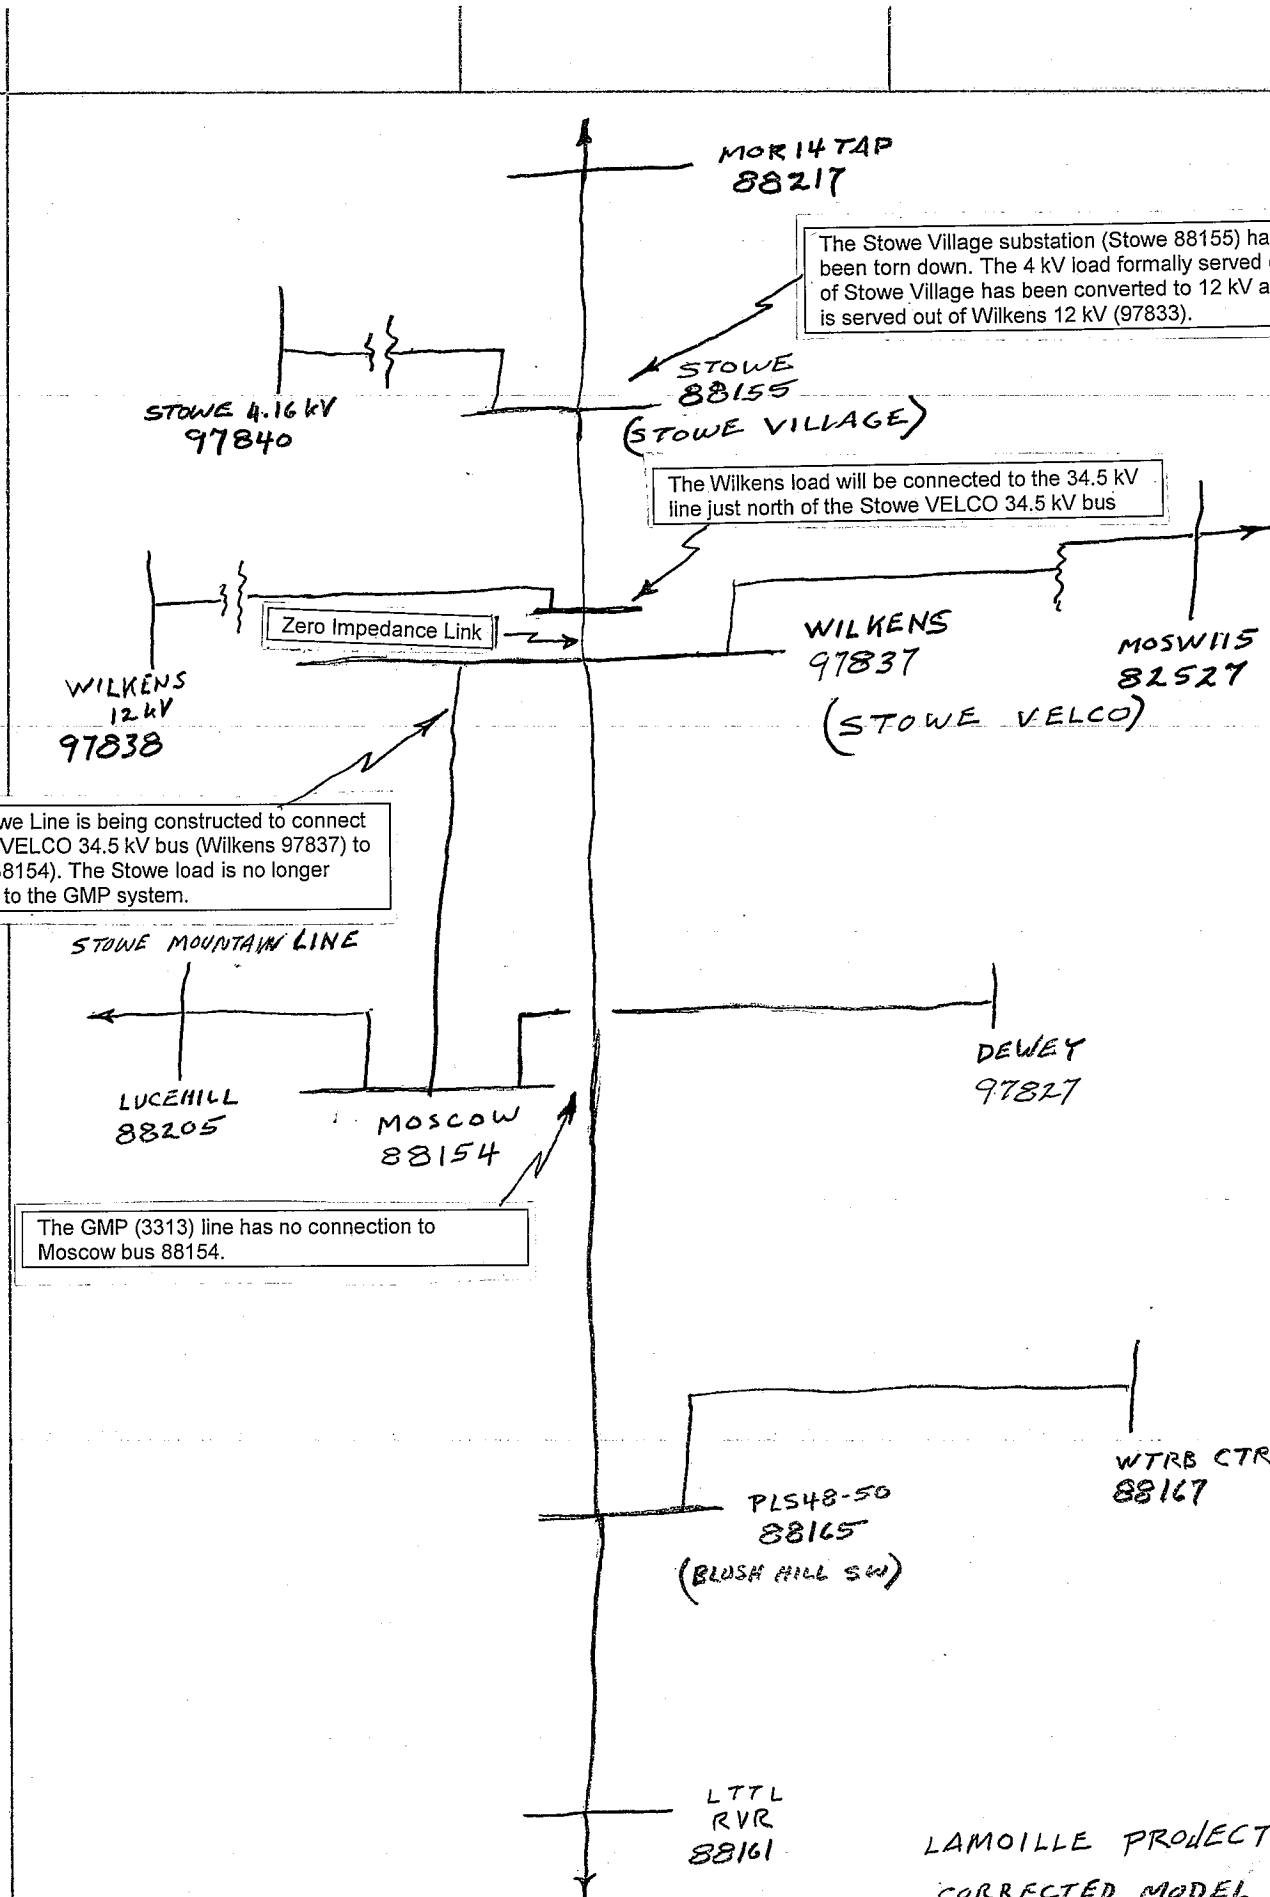 MOR 14 TAP
88217
The Stowe Village substation (Stowe 88155) ha
been torn down. The 4 kV load formally served
of Stowe Village has been converted to 12 kV a
is served out of Wilkens 12 kV (97833).
STOWE
88155
(STOWE VILLAGE)
STOWE 4.16 kV
97840
The Wilkens load will be connected to the 34.5 kV
line just north of the Stowe VELCO 34.5 kV bus
Zero Impedance Link
WILKENS
97837
(STOWE VELCO)
MOSW115
82527
WILKENS
12 kV
97838
we Line is being constructed to connect
VELCO 34.5 kV bus (Wilkens 97837) to
8154). The Stowe load is no longer
to the GMP system.
STOWE MOUNTAIN LINE
LUCEHILL
88205
MOSCOW
88154
DEWEY
97827
The GMP (3313) line has no connection to
Moscow bus 88154.
WTRB CTR
88167
PLS48-50
88165
(BLUSH HILL SW)
LTTL
RVR
88161
LAMOILLE PROJECT
CORRECTED MODEL